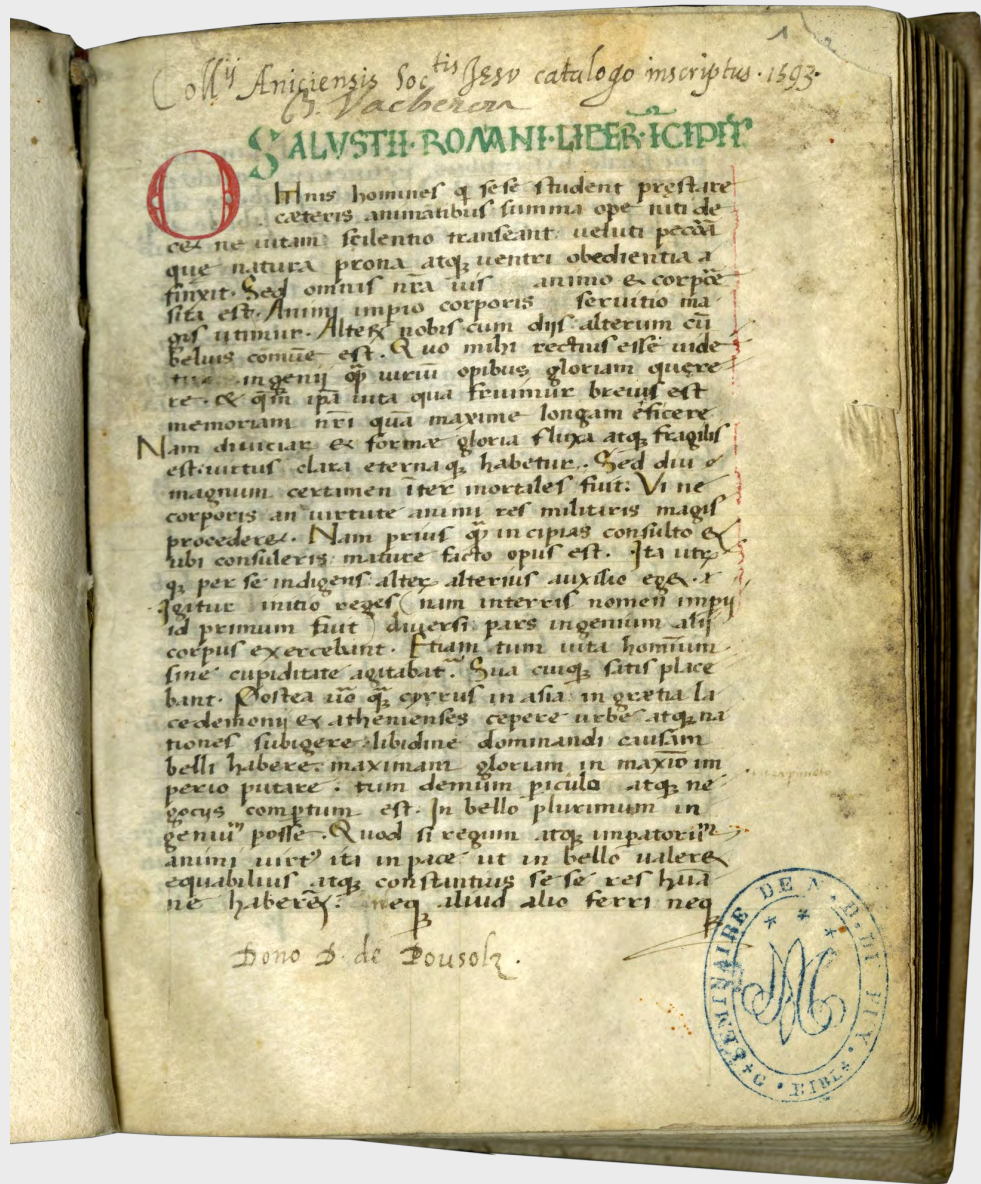 Collij Aniciensis Soctis Jesv catalogo inscriptus · 1593 ·
Vacheron
SALVSTII · ROMANI · LIBER · ĪCIPIT
Omnis homines q sese student prestare
cæteris animantibus summa ope niti de
cet ne uitam scilentio transeant: ueluti
que natura prona atq; uentri obedientia
finxit. Sed omnis nr̄a uis animo & corpore
sita est. Animi imperio corporis seruitio ma
gis utimur. Alterꝝ nobis cum dijs: alterum cū
beluis comūe est. Quo mihi rectius esse uide
ingenij qꝫ uiriū opibus gloriam quęre
re. & qm̄ ip̄a uita qua fruimur breuis est
memoriam nr̄i quā maxime longam eficere
Nam diuiciar & formæ gloria fluxa atq; fragilis
est. uirtus clara eternaq; habetur. Sed diu
magnum certamen īter mortales fuit: Vi ne
corporis an uirtute animi res militaris magis
procederet. Nam prius qꝫ incipias consulto &
ubi consuleris: mature facto opus est. Ita utrū
q; per se indigens: alterꝝ alterius auxilio eget.
Igitur initio reges (nam interris nomen imp̄ij
id primum fuit) diuersi: pars ingenium alij
corpus exercebant. Etiam tum uita hominum
sine cupiditate agitabatʳ. Sua cuiq; satis place
bant. Postea uo̅ qꝫ cyrrus in asia: in grætia la
cedemonij & athenienses cepere urbeſ atq; na
tiones subigere: libidinē dominandi causam
belli habere: maximam gloriam in maxīo im
perio putare. tum demum p̱iculo atq; ne
gocijs comp̱tum est. In bello plurimum in
geniuʒ posse. Quod si regum atq; imp̱atoriū
animi uirtꝰ ita in pace ut in bello ualeret
equabilius atq; constantius sese res hūa
ne haberēt: neq aliud alio ferri neq
Dono D. de Pousolz.
SEMINAIRE DE N. D. DU PUY.
G. BIBL